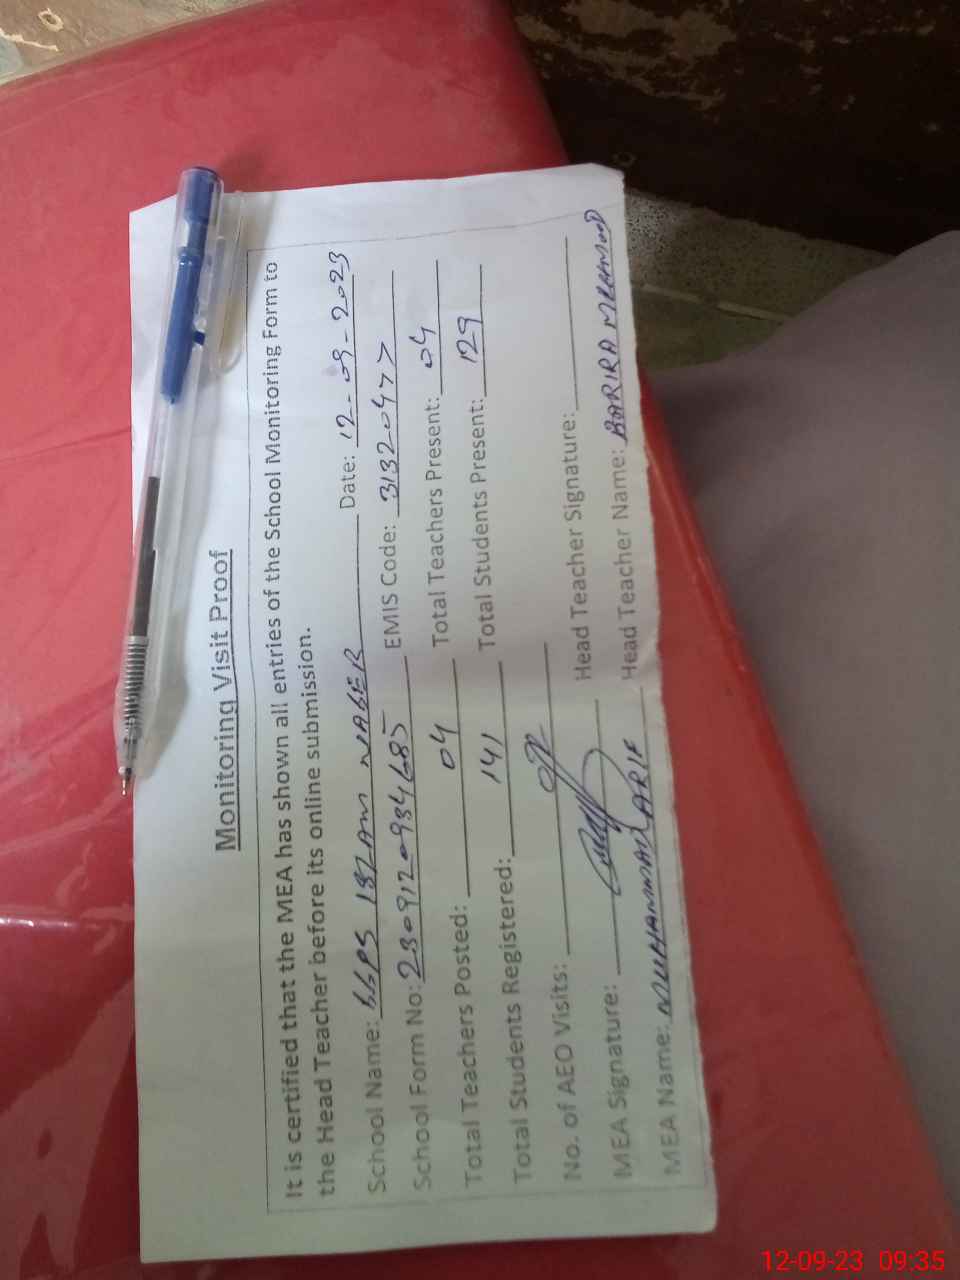 Monitoring Visit Proof
It is certified that the MEA has shown all entries of the School Monitoring Form to
the Head Teacher before its online submission.
School Name: GGPS 187Am NAGER Date: 12-09-2023
School Form No: 2309120934685 EMIS Code: 31320477
Total Teachers Posted: 04 Total Teachers Present: 04
Total Students Registered: 141 Total Students Present: 129
No. of AEO Visits: 02
MEA Signature: Head Teacher Signature:
MEA Name: MUHAMMAD ARIF Head Teacher Name: BARIRA MEHMOOD
12-09-23 09:35